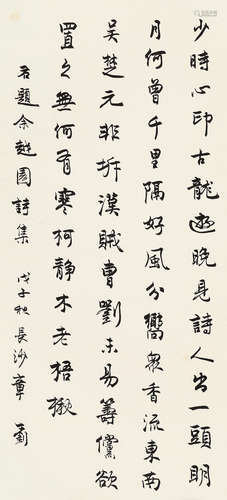 少時心印古龍遊晚見詩人出一頭明
月何曾千里隔好風分嚮眾香流東南
吳楚元非坼漢賊曹劉未易籌儻欲
置之無何有寒柯靜木老梧楸
君題余越園詩集 戊子秋長沙章釗